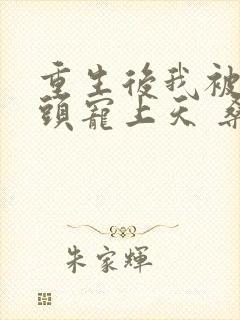 重生後我被
頭寵上天
朱家輝